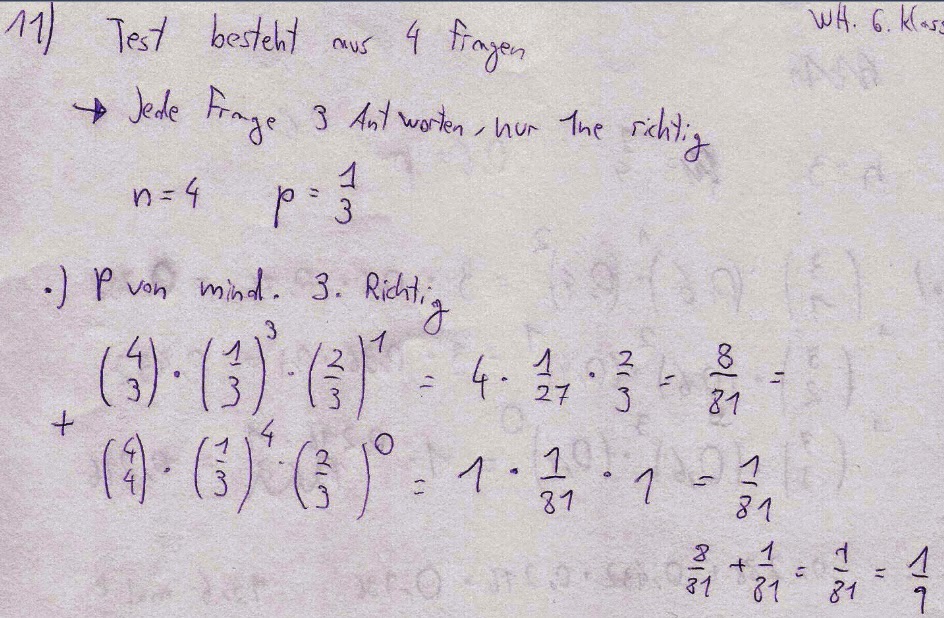 11) Test besteht aus 4 Fragen WH. 6. Klass
→ Jede Frage 3 Antworten, nur 1ne richtig
n = 4 p = 1/3
.) P von mind. 3. Richtig
(4 3) · (1/3)^3 · (2/3)^1 = 4 · 1/27 · 2/3 = 8/81 =
+
(4 4) · (1/3)^4 · (2/3)^0 = 1 · 1/81 · 1 = 1/81
8/81 + 1/81 = 1/81 = 1/9